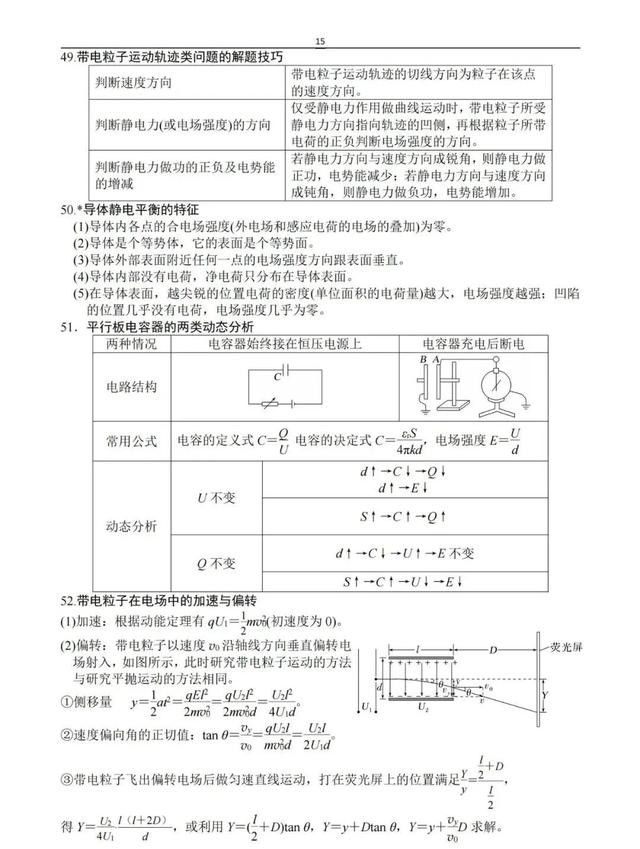 15
49.带电粒子运动轨迹类问题的解题技巧
判断速度方向
带电粒子运动轨迹的切线方向为粒子在该点
的速度方向。
判断静电力(或电场强度)的方向
仅受静电力作用做曲线运动时，带电粒子所受
静电力方向指向轨迹的凹侧，再根据粒子所带
电荷的正负判断电场强度的方向。
判断静电力做功的正负及电势能
的增减
若静电力方向与速度方向成锐角，则静电力做
正功，电势能减少；若静电力方向与速度方向
成钝角，则静电力做负功，电势能增加。
50.*导体静电平衡的特征
(1)导体内各点的合电场强度(外电场和感应电荷的电场的叠加)为零。
(2)导体是个等势体，它的表面是个等势面。
(3)导体外部表面附近任何一点的电场强度方向跟表面垂直。
(4)导体内部没有电荷，净电荷只分布在导体表面。
(5)在导体表面，越尖锐的位置电荷的密度(单位面积的电荷量)越大，电场强度越强；凹陷
的位置几乎没有电荷，电场强度几乎为零。
51．平行板电容器的两类动态分析
两种情况 电容器始终接在恒压电源上 电容器充电后断电
电路结构
C
B A
常用公式 电容的定义式 C=Q/U 电容的决定式 C=εrS/4πkd，电场强度 E=U/d
动态分析
U 不变
d↑→C↓→Q↓
d↑→E↓
S↑→C↑→Q↑
Q 不变
d↑→C↓→U↑→E 不变
S↑→C↑→U↓→E↓
52.带电粒子在电场中的加速与偏转
(1)加速：根据动能定理有 qU₁=1/2mv₀²(初速度为 0)。
(2)偏转：带电粒子以速度 v₀ 沿轴线方向垂直偏转电
场射入，如图所示，此时研究带电粒子运动的方法
与研究平抛运动的方法相同。
l D 荧光屏
d θ y v₀ v Y
U₁ U₂
①侧移量 y=1/2at²=qEl²/2mv₀²=qU₂l²/2mv₀²d=U₂l²/4U₁d。
②速度偏向角的正切值：tan θ=vy/v₀=qU₂l/mv₀²d=U₂l/2U₁d。
③带电粒子飞出偏转电场后做匀速直线运动，打在荧光屏上的位置满足Y/y=(l/2+D)/(l/2)，
得 Y=U₂/4U₁ l（l+2D）/d，或利用 Y=(l/2+D)tan θ，Y=y+Dtan θ，Y=y+vy/v₀D 求解。